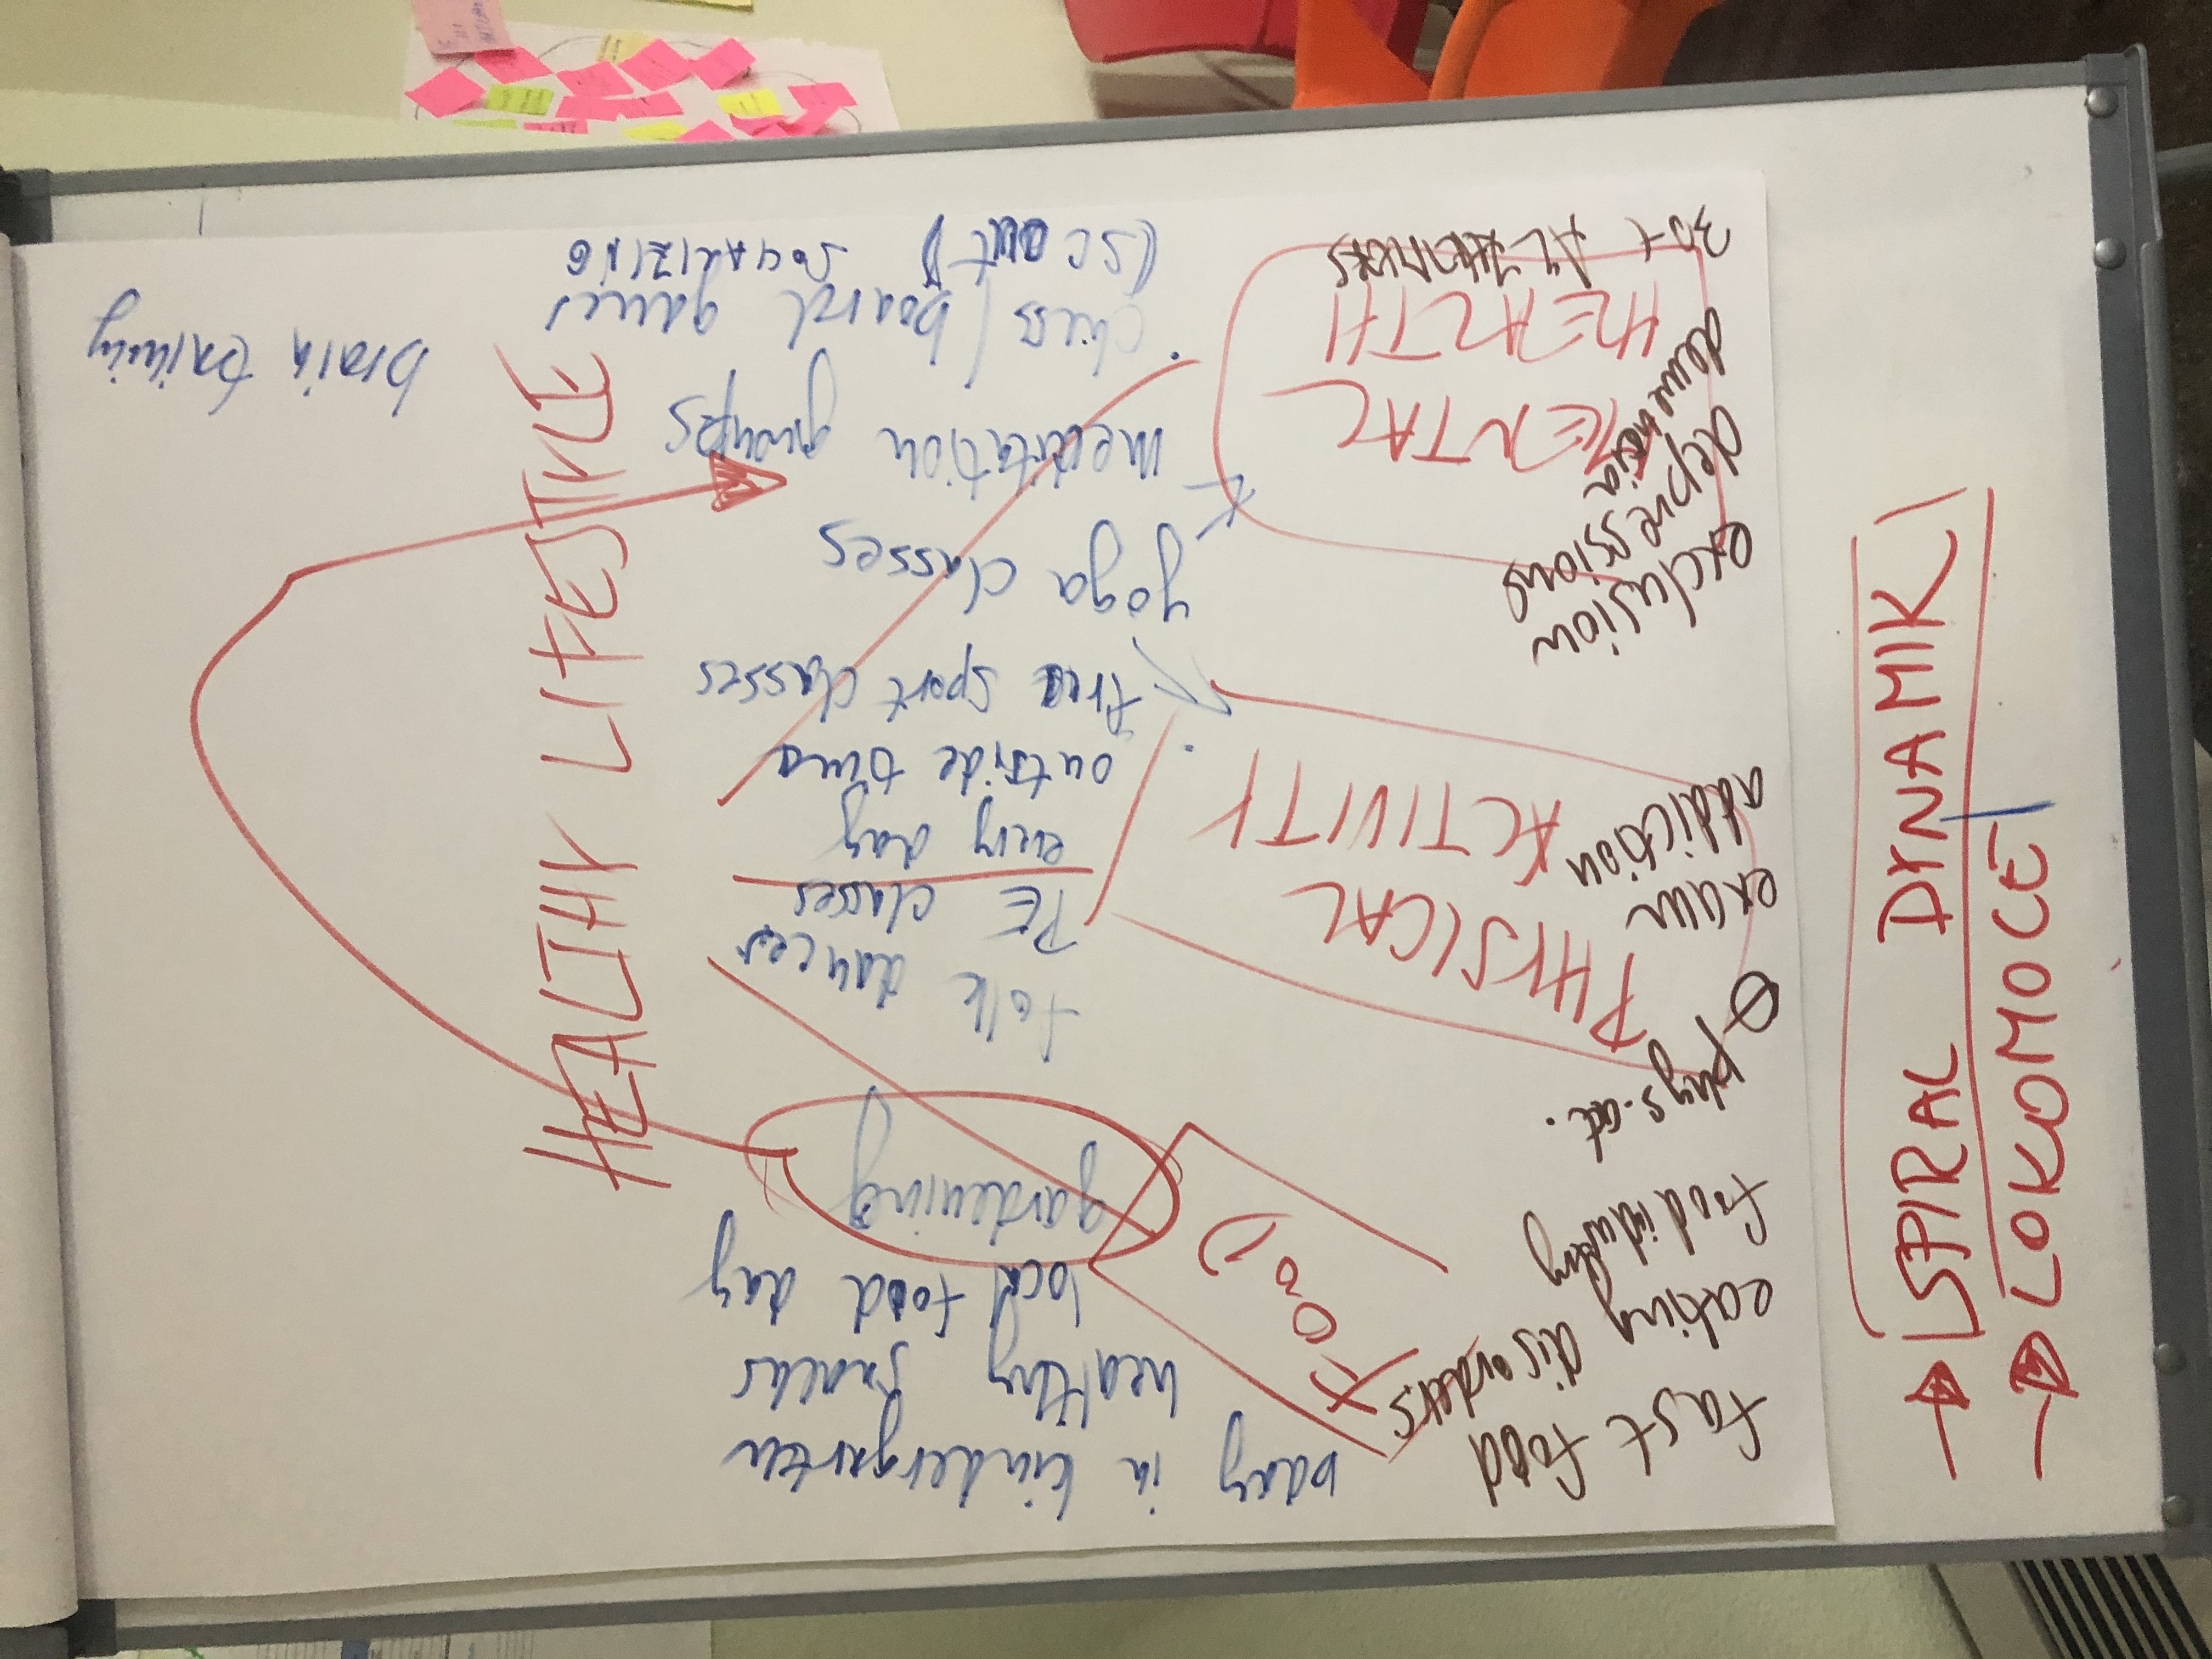 fast food
eating disorders
food industry
Ø phys. act.
exam
addiction
exclusion
depressions
dementia
30+ ALZHEIMERS
FOOD
PHYSICAL
ACTIVITY
MENTAL
HEALTH
in kindergarten
healthy snacks
local food day
gardening
folk dances
PE classes
every day
outside time
free sport classes
yoga classes
meditation groups
chess / board games
(SCOUT)
SOCIALIZING
HEALTHY LIFESTYLE
brain training
→ SPIRAL DYNAMIK
→ LOKOMOCE